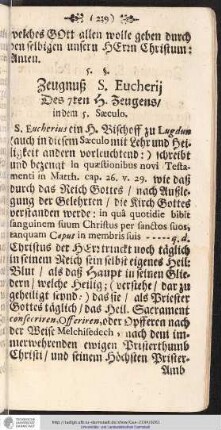 ( 239 )
welches GOtt allen wolle geben durch
den selbigen unsern HErrn Christum:
Amen.
5. §.
Zeugnuß S. Eucherij
Des 7ten H. Zeugens/
in dem 5. Sæculo.
S. Eucherius ein H. Bischoff zu Lugdun
(auch in diesem Sæculo mit Lehr und Hei-
ligkeit andern vorleuchtend:) schreibt
und bezeugt in quæstionibus novi Testa-
menti in Matth. cap. 26. v. 29. wie daß
durch das Reich Gottes / nach Außle-
gung der Gelehrten / die Kirch Gottes
verstanden werde: in quâ quotidie bibit
sanguinem suum Christus per sanctos suos,
tanquam Caput in membris suis - - - - q. d.
Christus der HErr trinckt noch täglich
in seinem Reich sein selbst eigenes Heil:
Blut / als daß Haupt in seinen Glie-
dern / welche Heilig; (verstehe / dar zu
geheiligt seynd:) da sie / als Priester
Gottes täglich / das Heil. Sacrament
consecriren, Offeriren, oder Opfferen nach
der Weise Melchisedech, nach dem im-
merwehrenden ewigen Pristerthumb
Christi / und seinem Höchsten Prister-
Amb